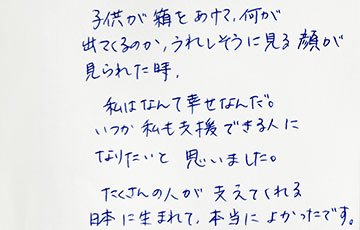 子供が箱をあけて、何が
出てくるのか、うれしそうに見る顔が
見られた時、
私はなんて幸せなんだ。
いつか私も支援できる人に
なりたいと思いました。
たくさんの人が支えてくれる
日本に生まれて、本当によかったです。